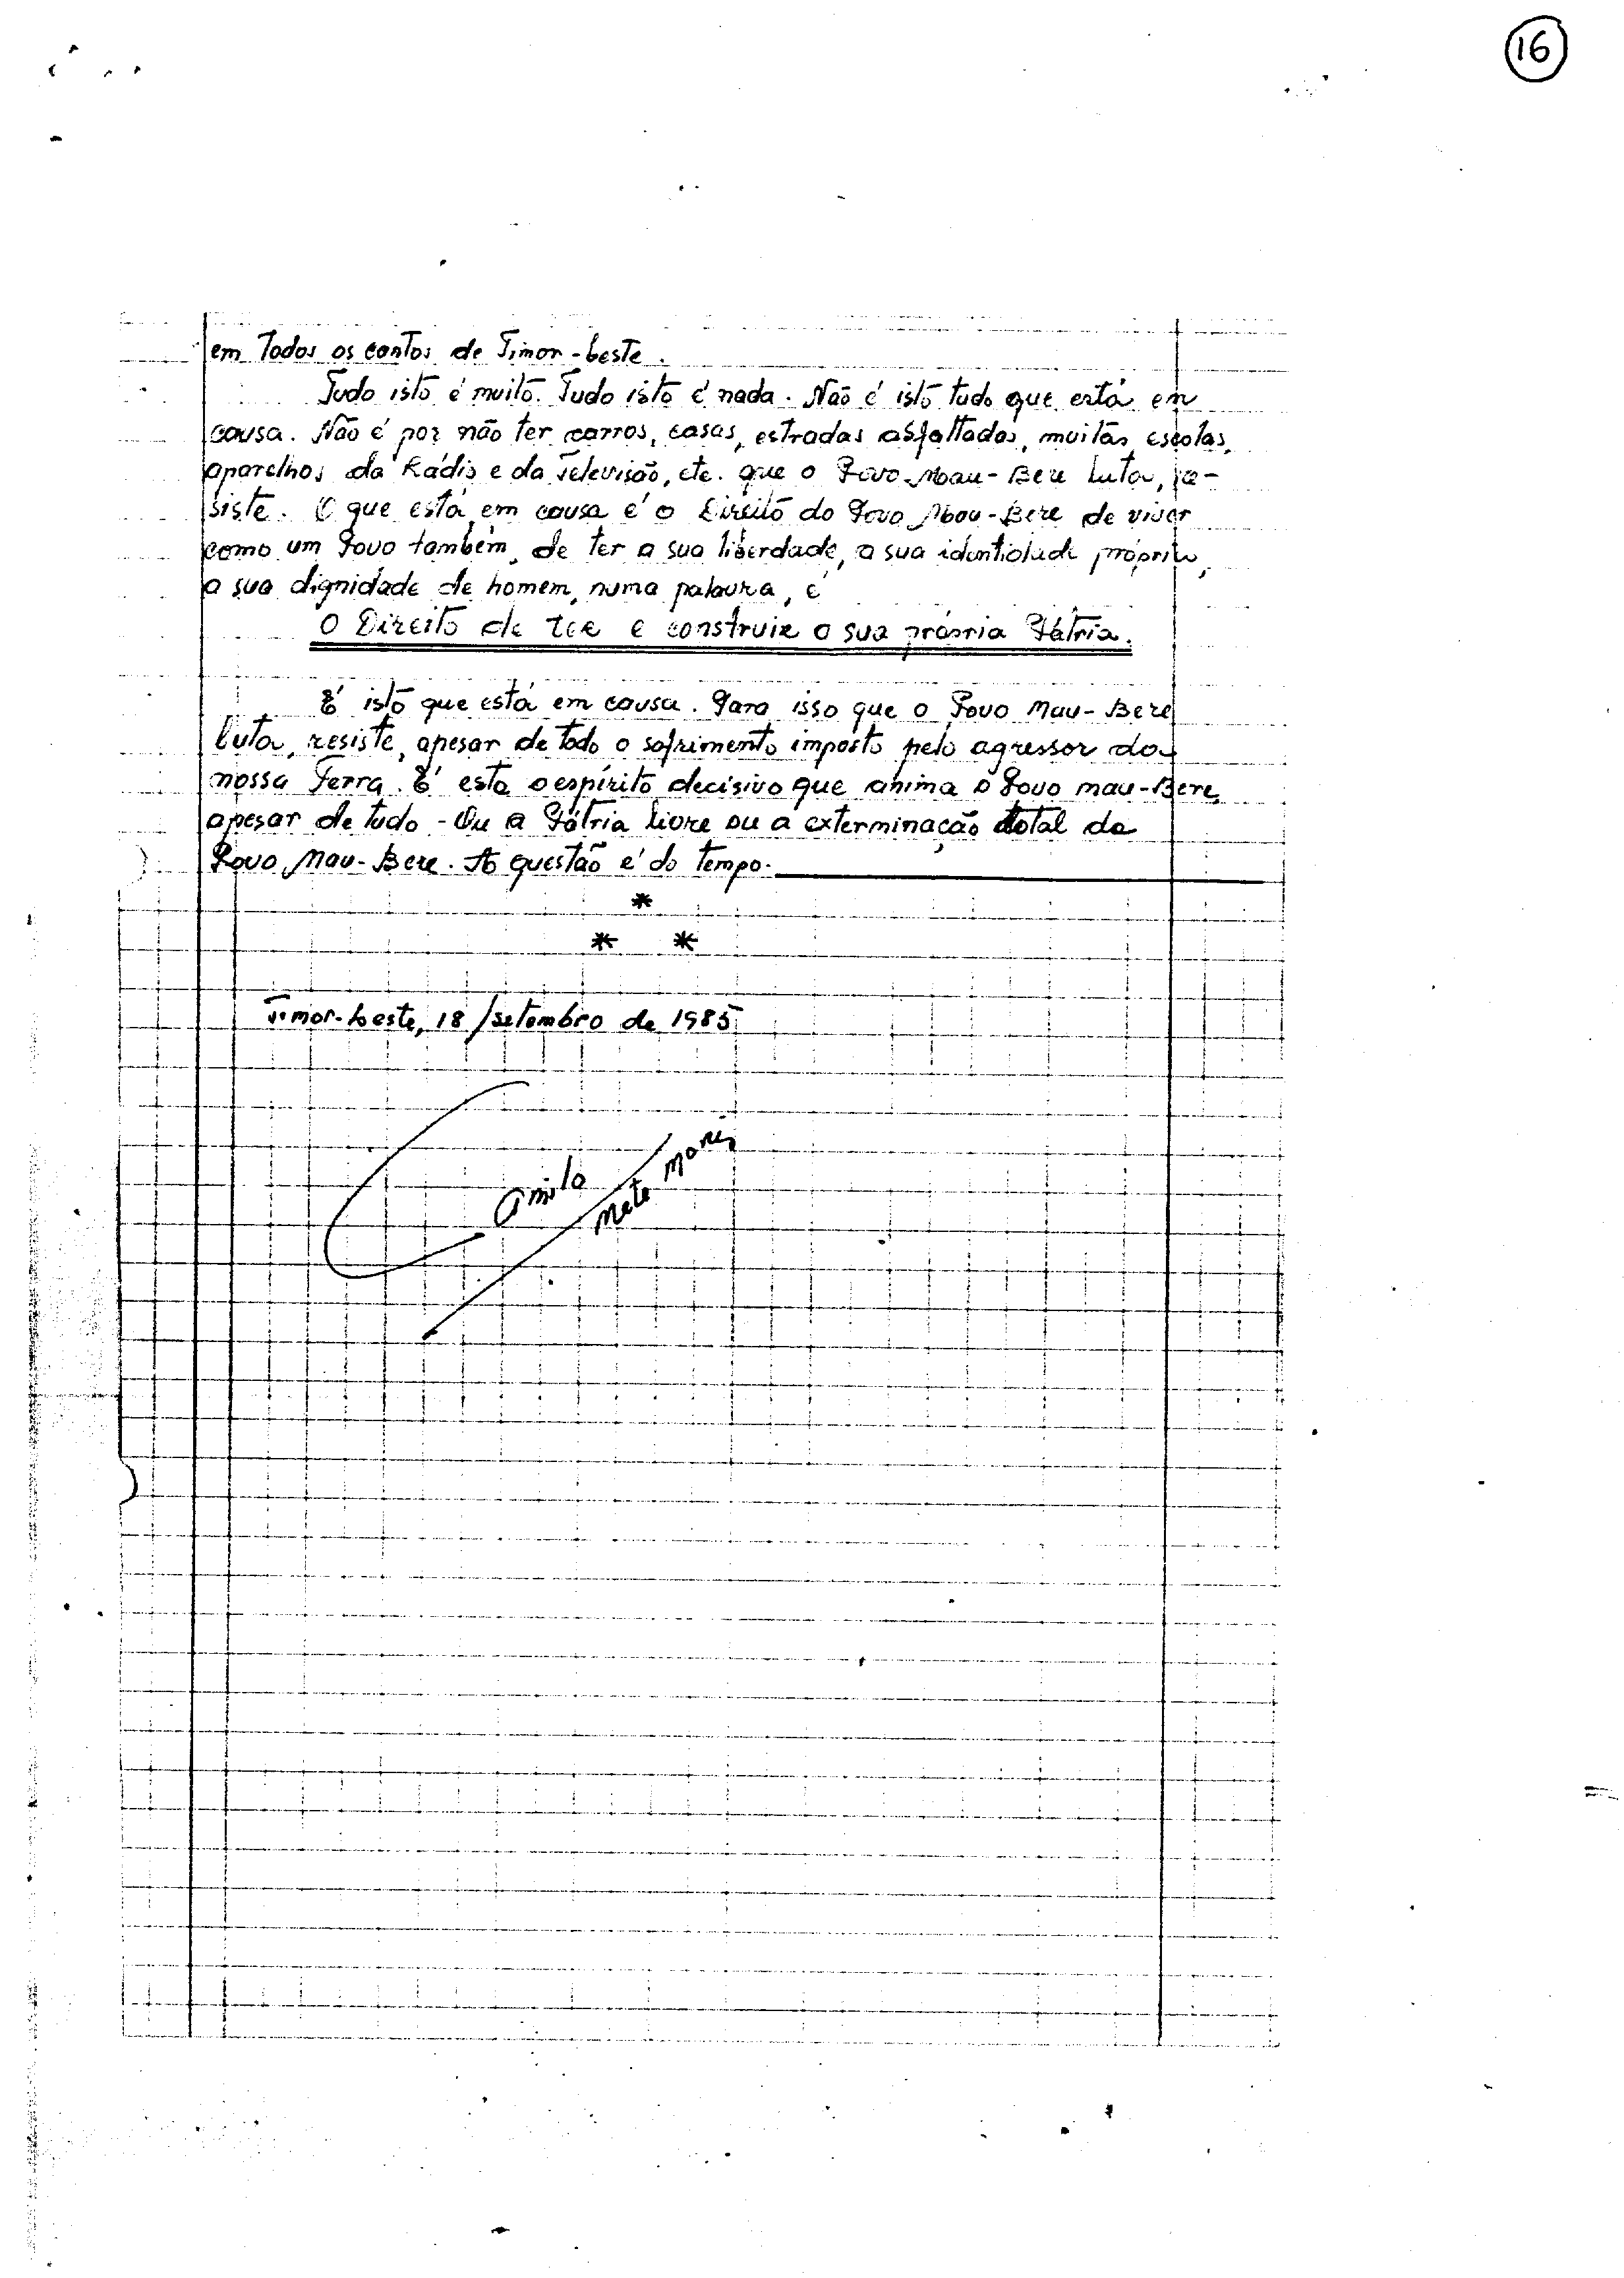 16
em Todos os cantos de Timor-Leste.
Tudo isto é muito. Tudo isto é nada. Não é isto tudo que está em
causa. Não é por não ter carros, casas, estradas asfaltadas, muitas escolas,
aparelhos da Rádio e da Televisão, etc. que o Povo Mau-Bere luta, re-
siste. O que está em causa é o Direito do Povo Mau-Bere de viver
como um Povo também, de ter a sua liberdade, a sua identidade própria,
a sua dignidade de homem, numa palavra, é
O Direito de ter e construir a sua própria Pátria.
É isto que está em causa. Para isso que o Povo Mau-Bere
luta, resiste, apesar de todo o sofrimento imposto pelo agressor da
nossa Terra. É esta o espírito decisivo que anima o Povo Mau-Bere,
apesar de tudo - Ou a Pátria livre ou a exterminação total do
Povo Mau-Bere. A questão é do tempo.
*
* *
Timor-Leste, 18/setembro de 1985